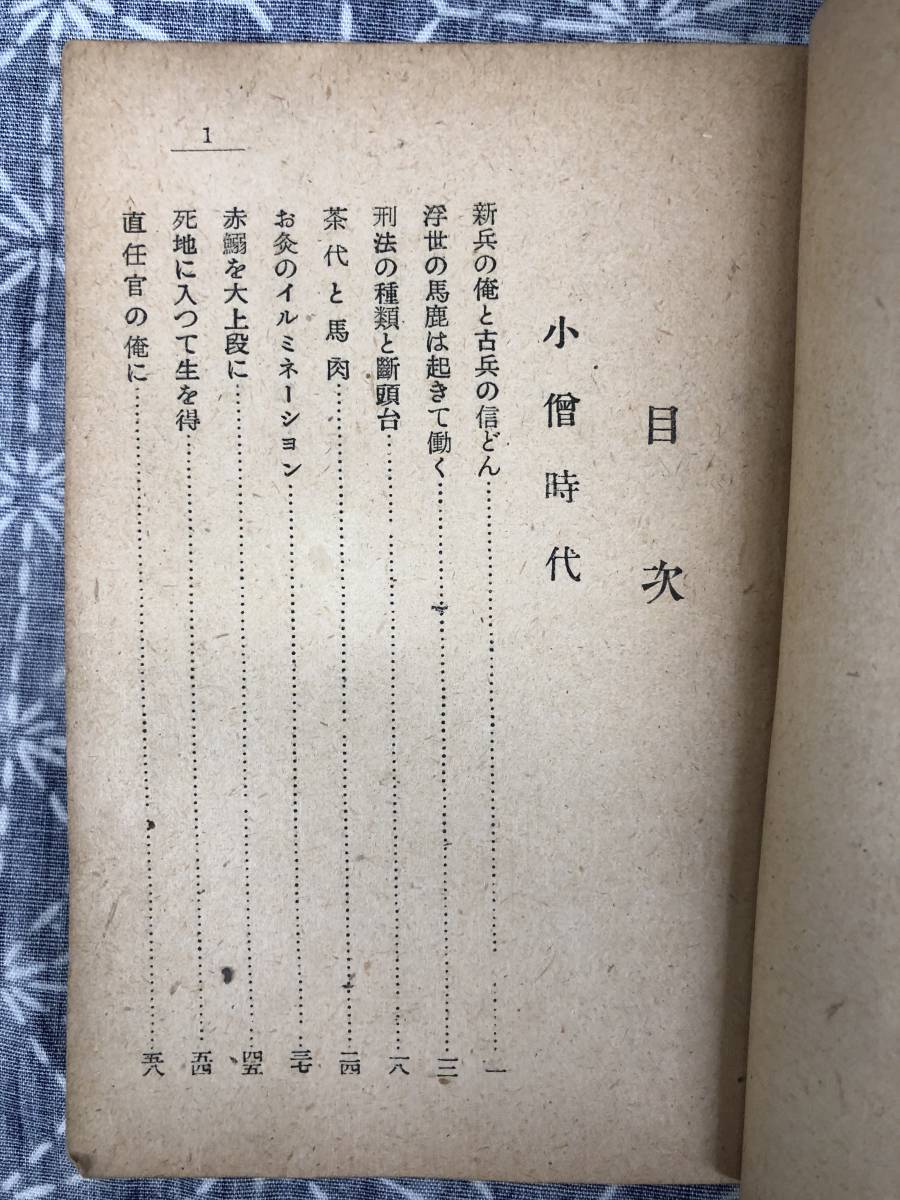 目次
小僧時代
新兵の俺と古兵の信どん……一
浮世の馬鹿は起きて働く……一二
刑法の種類と斷頭台……一八
茶代と馬肉……二四
お灸のイルミネーション……三七
赤鰯を大上段に……四五
死地に入つて生を得……五四
直任官の俺に……五八
1